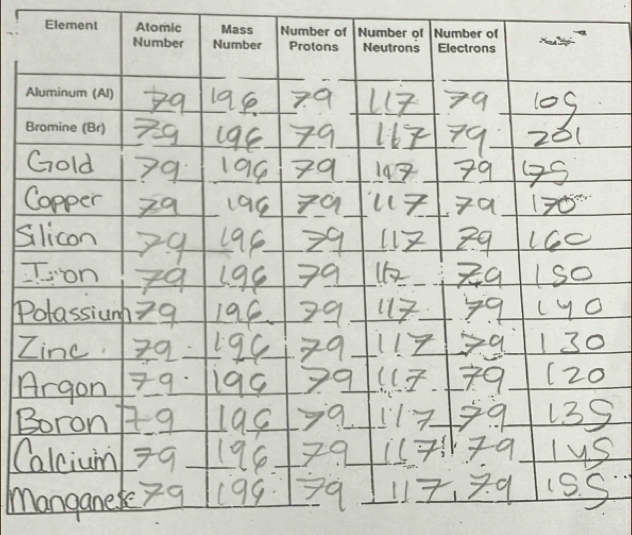 Element Atomic Number Mass Number Number of Protons Number of Neutrons Number of Electrons
Aluminum (Al) 79 196 79 117 79 109
Bromine (Br) 79 196 79 117 79 201
Gold 79 196 79 117 79 175
Copper 79 196 79 117 79 170
Silicon 79 196 79 117 79 160
Iron 79 196 79 117 79 150
Potassium 79 196 79 117 79 140
Zinc 79 196 79 117 79 130
Argon 79 196 79 117 79 120
Boron 79 196 79 117 79 135
Calcium 79 196 79 117 79 145
Manganese 79 196 79 117 79 155